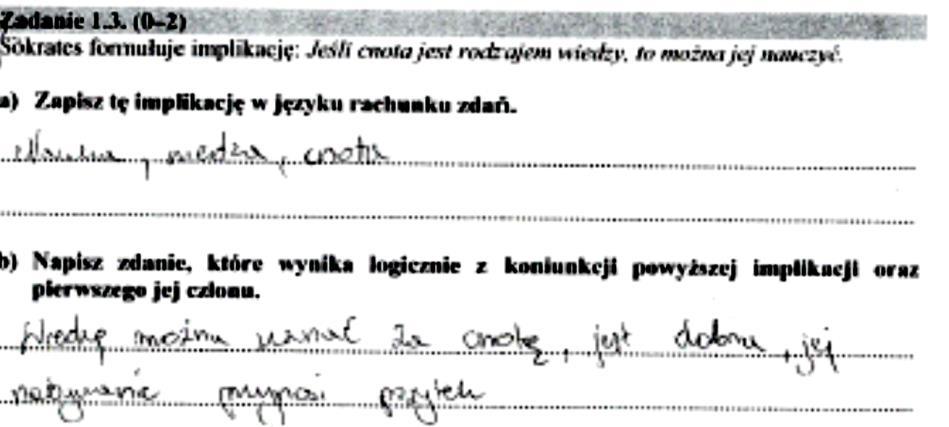 Zadanie 1.3. (0–2)
Sokrates formułuje implikację: Jeśli cnota jest rodzajem wiedzy, to można jej nauczyć.
a) Zapisz tę implikację w języku rachunku zdań.
Nauka, wiedza, cnota
b) Napisz zdanie, które wynika logicznie z koniunkcji powyższej implikacji oraz
pierwszego jej członu.
Wiedzę można uznać za cnotę, jest dobra, jej
nabywanie przynosi pożytek